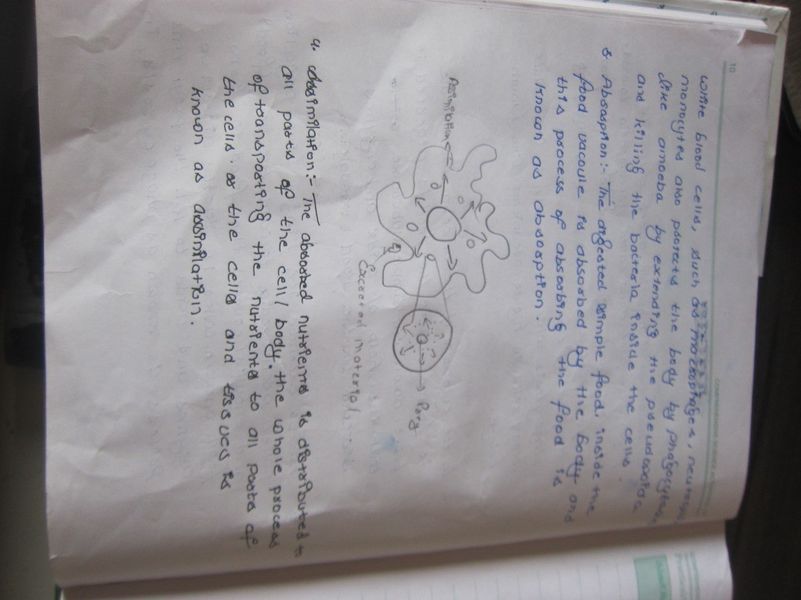 10
white blood cells, such as macrophages,
monocytes also protects the body by
like amoeba by extending the
and killing the bacteria inside the cells.
3. Absorption:- The digested simple food, inside the
food vacuole is absorbed by the body and
this process of absorbing the food is
known as absorption.
Assimilation
Prey
Excreted material
4. Assimilation:- The absorbed nutrients is distributed to
all parts of the cell/body. the whole process
of transporting the nutrients to all parts of
the cells. or the cells and tissues is
known as assimilation.